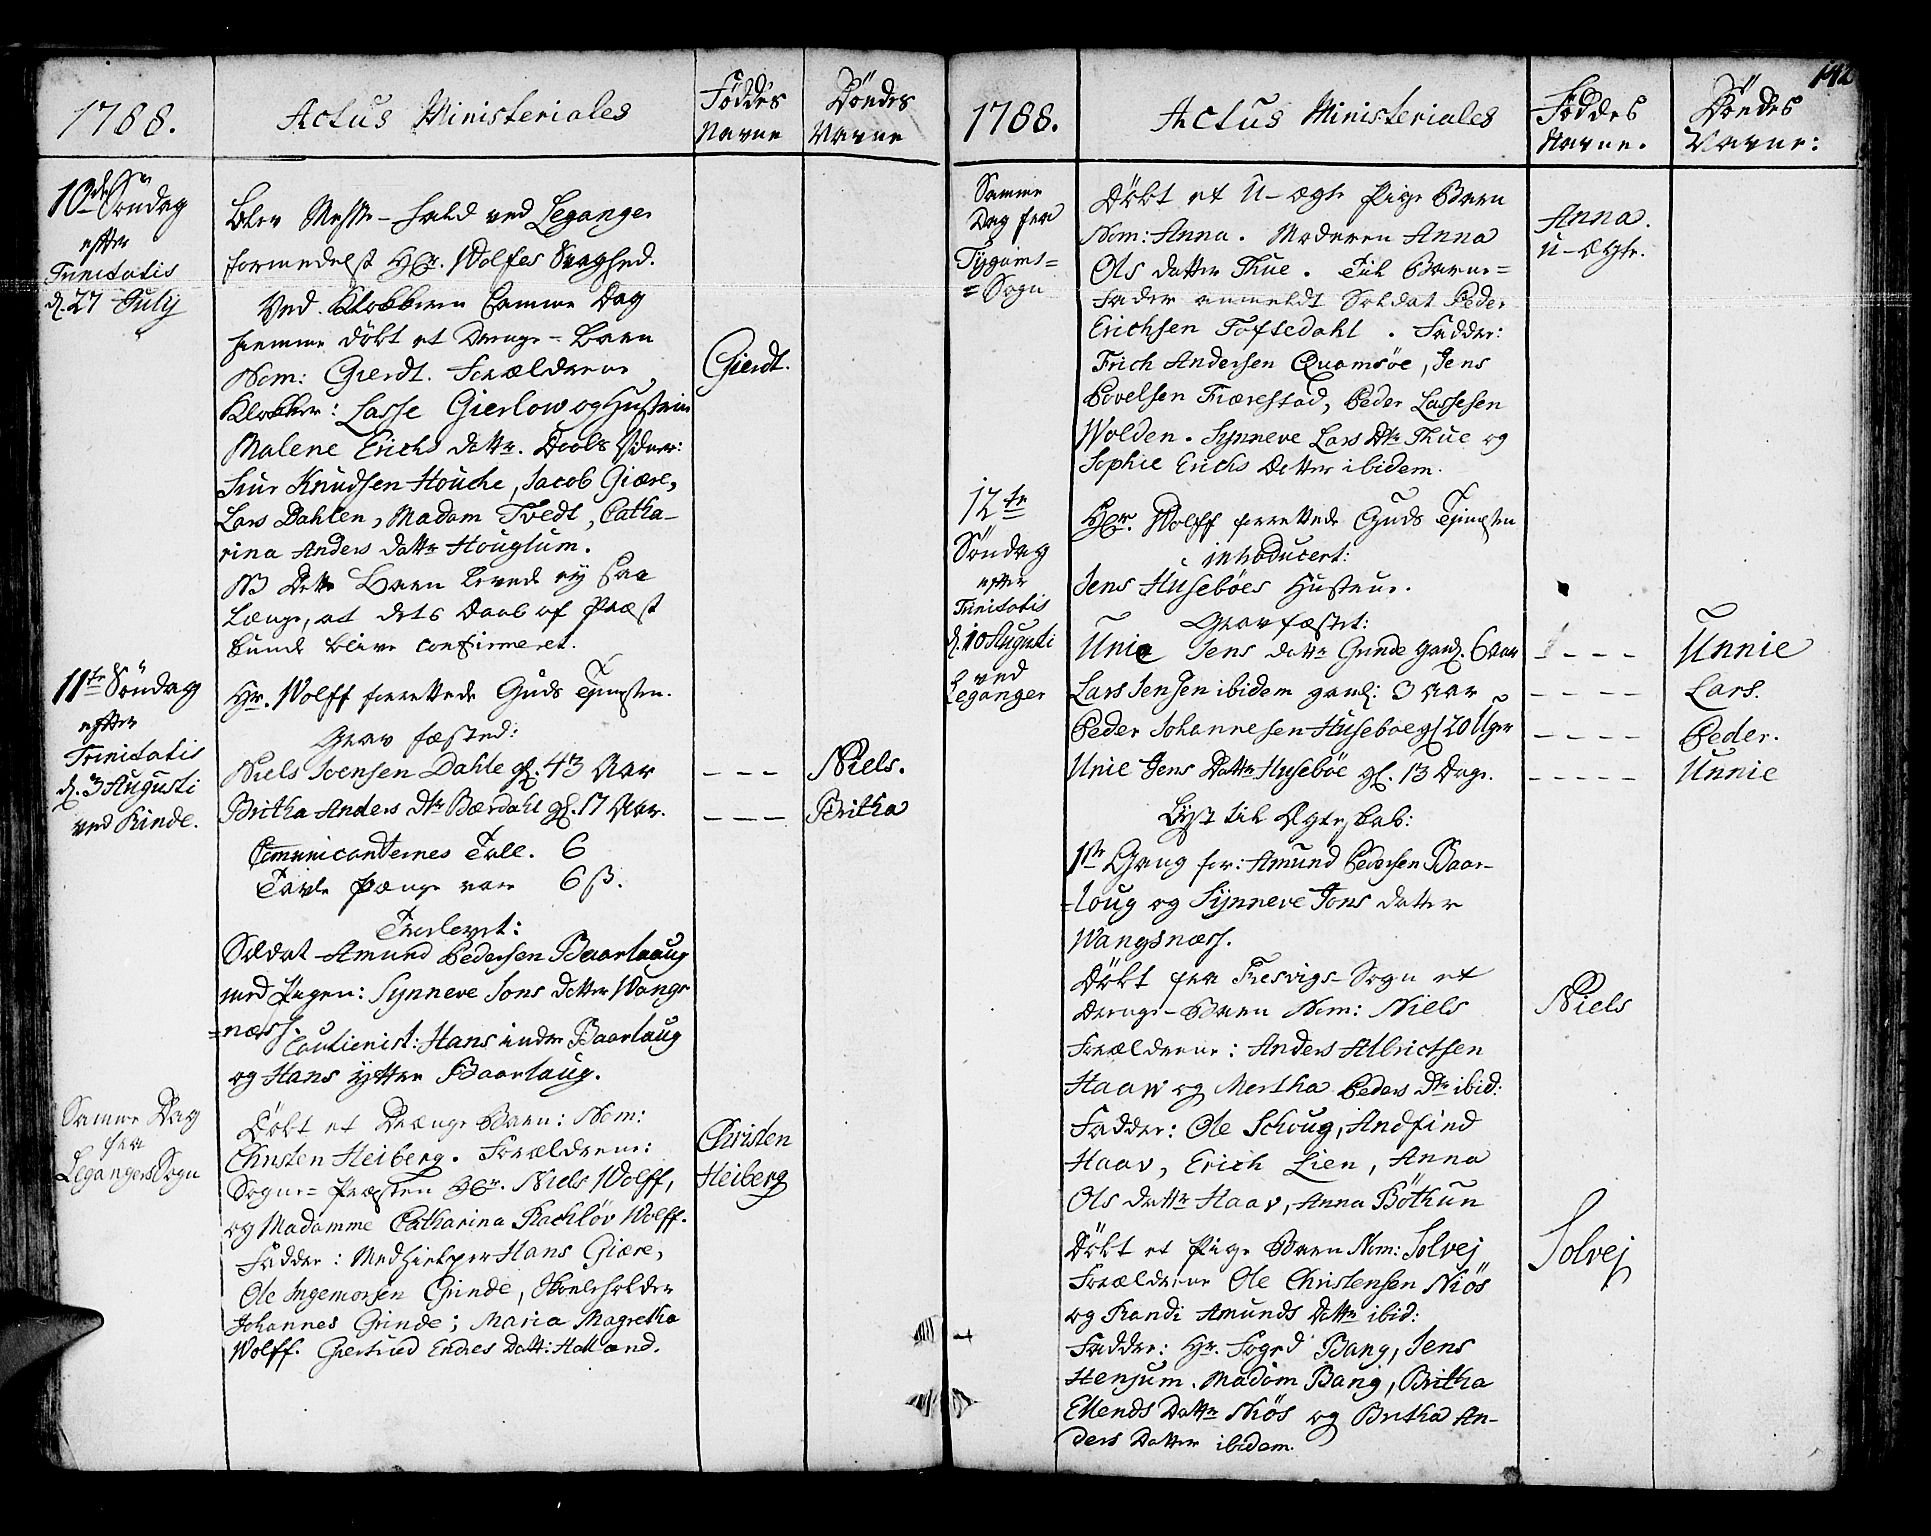 1788.
Actus Ministeriales
Föddes Navne
Döndes Navne
10de Söndag
efter
Trinitatis
d. 27 July
Blev Messe-Fald ved Leganger
formedelst Hr. Wolfes Svaghed.
Ved Klokkeren samme Dag
hiemme döbt et Drenge-Barn
Nom: Gierdt. Forældrene
Klokker: Lasse Gierlow og Hustrue
Malene Erichs Datter. Daabs Vidner:
Siur Knudsen Houche, Jacob Giære,
Lars Dahlen, Madam Tvedt, Catha-
rina Anders Datter Houglum.
NB Dette Barn levede ej saa
længe, at dets Daab af Præst
kunde blive confirmeret.
Gierdt.
11te Söndag
efter
Trinitatis
d. 3 Augusti
ved Rinde.
Hr. Wolff forrettede Guds Tjenesten.
Grav fæsted:
Niels Iversen Dahle gl. 43 Aar
- - -
Niels.
Britha Anders Dtr Bærdahl gl. 17 Aar.
- - -
Britha
Communicanternes Tall. 6
Tavle Penge vare 6 ß.
Trolovet:
Soldat Amund Pedersen Baarlaug
med Pigen: Synneve Jons Datter Wangs
=næss.
Cautionist: Hans indre Baarlaug
og Hans ytter Baarlaug.
Samme Dag
fra
Legangers Sogn
Döbt et Drænge Barn: Nom:
Christen Heiberg. Forældrene:
Sogne=Præsten Hr. Niels Wolff,
og Madamme Catharina Rachløv Wolff.
Faddere: Medhielper Hans Giære,
Ole Ingemorsen Grinde, Skoeleholder
Johannes Grinde; Maria Magretha
Wolff. Giertrud Endres Datt: Hatland.
Christen
Heiberg
142
1788.
Actus Ministeriales
Föddes Navne.
Döndes Navne:
Samme
Dag fra
Tygums=
=Sogn
Döbt et U-ægte Pige Barn
Nom: Anna. Moderen Anna
Ols Datter Thue. Til Barne=
Fader anmeldt Soldat Peder
Erichsen Toftedahl. Fadder:
Erich Andersen Quamsöe, Jens
Povelsen Tiærestad, Peder Lassesen
Wolden. Synneve Lars Dtr Thue og
Sophie Erichs Datter ibidem.
Anna.
U-ægte.
12te
Söndag
efter
Trinitatis
d. 10 Augusti
ved
Leganger
Hr. Wolff forrettede Guds Tjenesten
introducert:
Jens Huseböes Hustrue.
Grav fæstet:
Unie Jens Datter Grinde gaml. 6 Aar
- - - -
Unnie
Lars Jensen ibidem gaml: 3 Aar
- - - -
Lars.
Peder Johannesen Huseboe gl 20 Uger
- - - -
Peder.
Unie Jens Datter Huseböe gl. 13 Dage.
- - - - -
Unnie
Lyst til Ægteskab:
1ste Gang for: Amund Pedersen Baar-
=loug og Synneve Jons Datter
Wangsnæss.
Döbt fra Fresvigs-Sogn et
Drenge-Barn Nom: Niels
Forældrene: Anders Albrictsen
Haaw og Mertha Peders Dtr ibid:
Fadder: Ole Schoug, Andfind
Haav, Erich Lien, Anna
Ols Datter Haav, Anna Böthun
Niels
Döbt et Pige Barn Nom: Solvej
Forældrene Ole Christensen Niös
og Randi Amunds Datter ibid:
Fadder: Hr. Foged Bang, Jens
Henjum. Madam Bang, Britha
Ellends Datter Niös og Britha An-
ders Datter ibidem.
Solvej